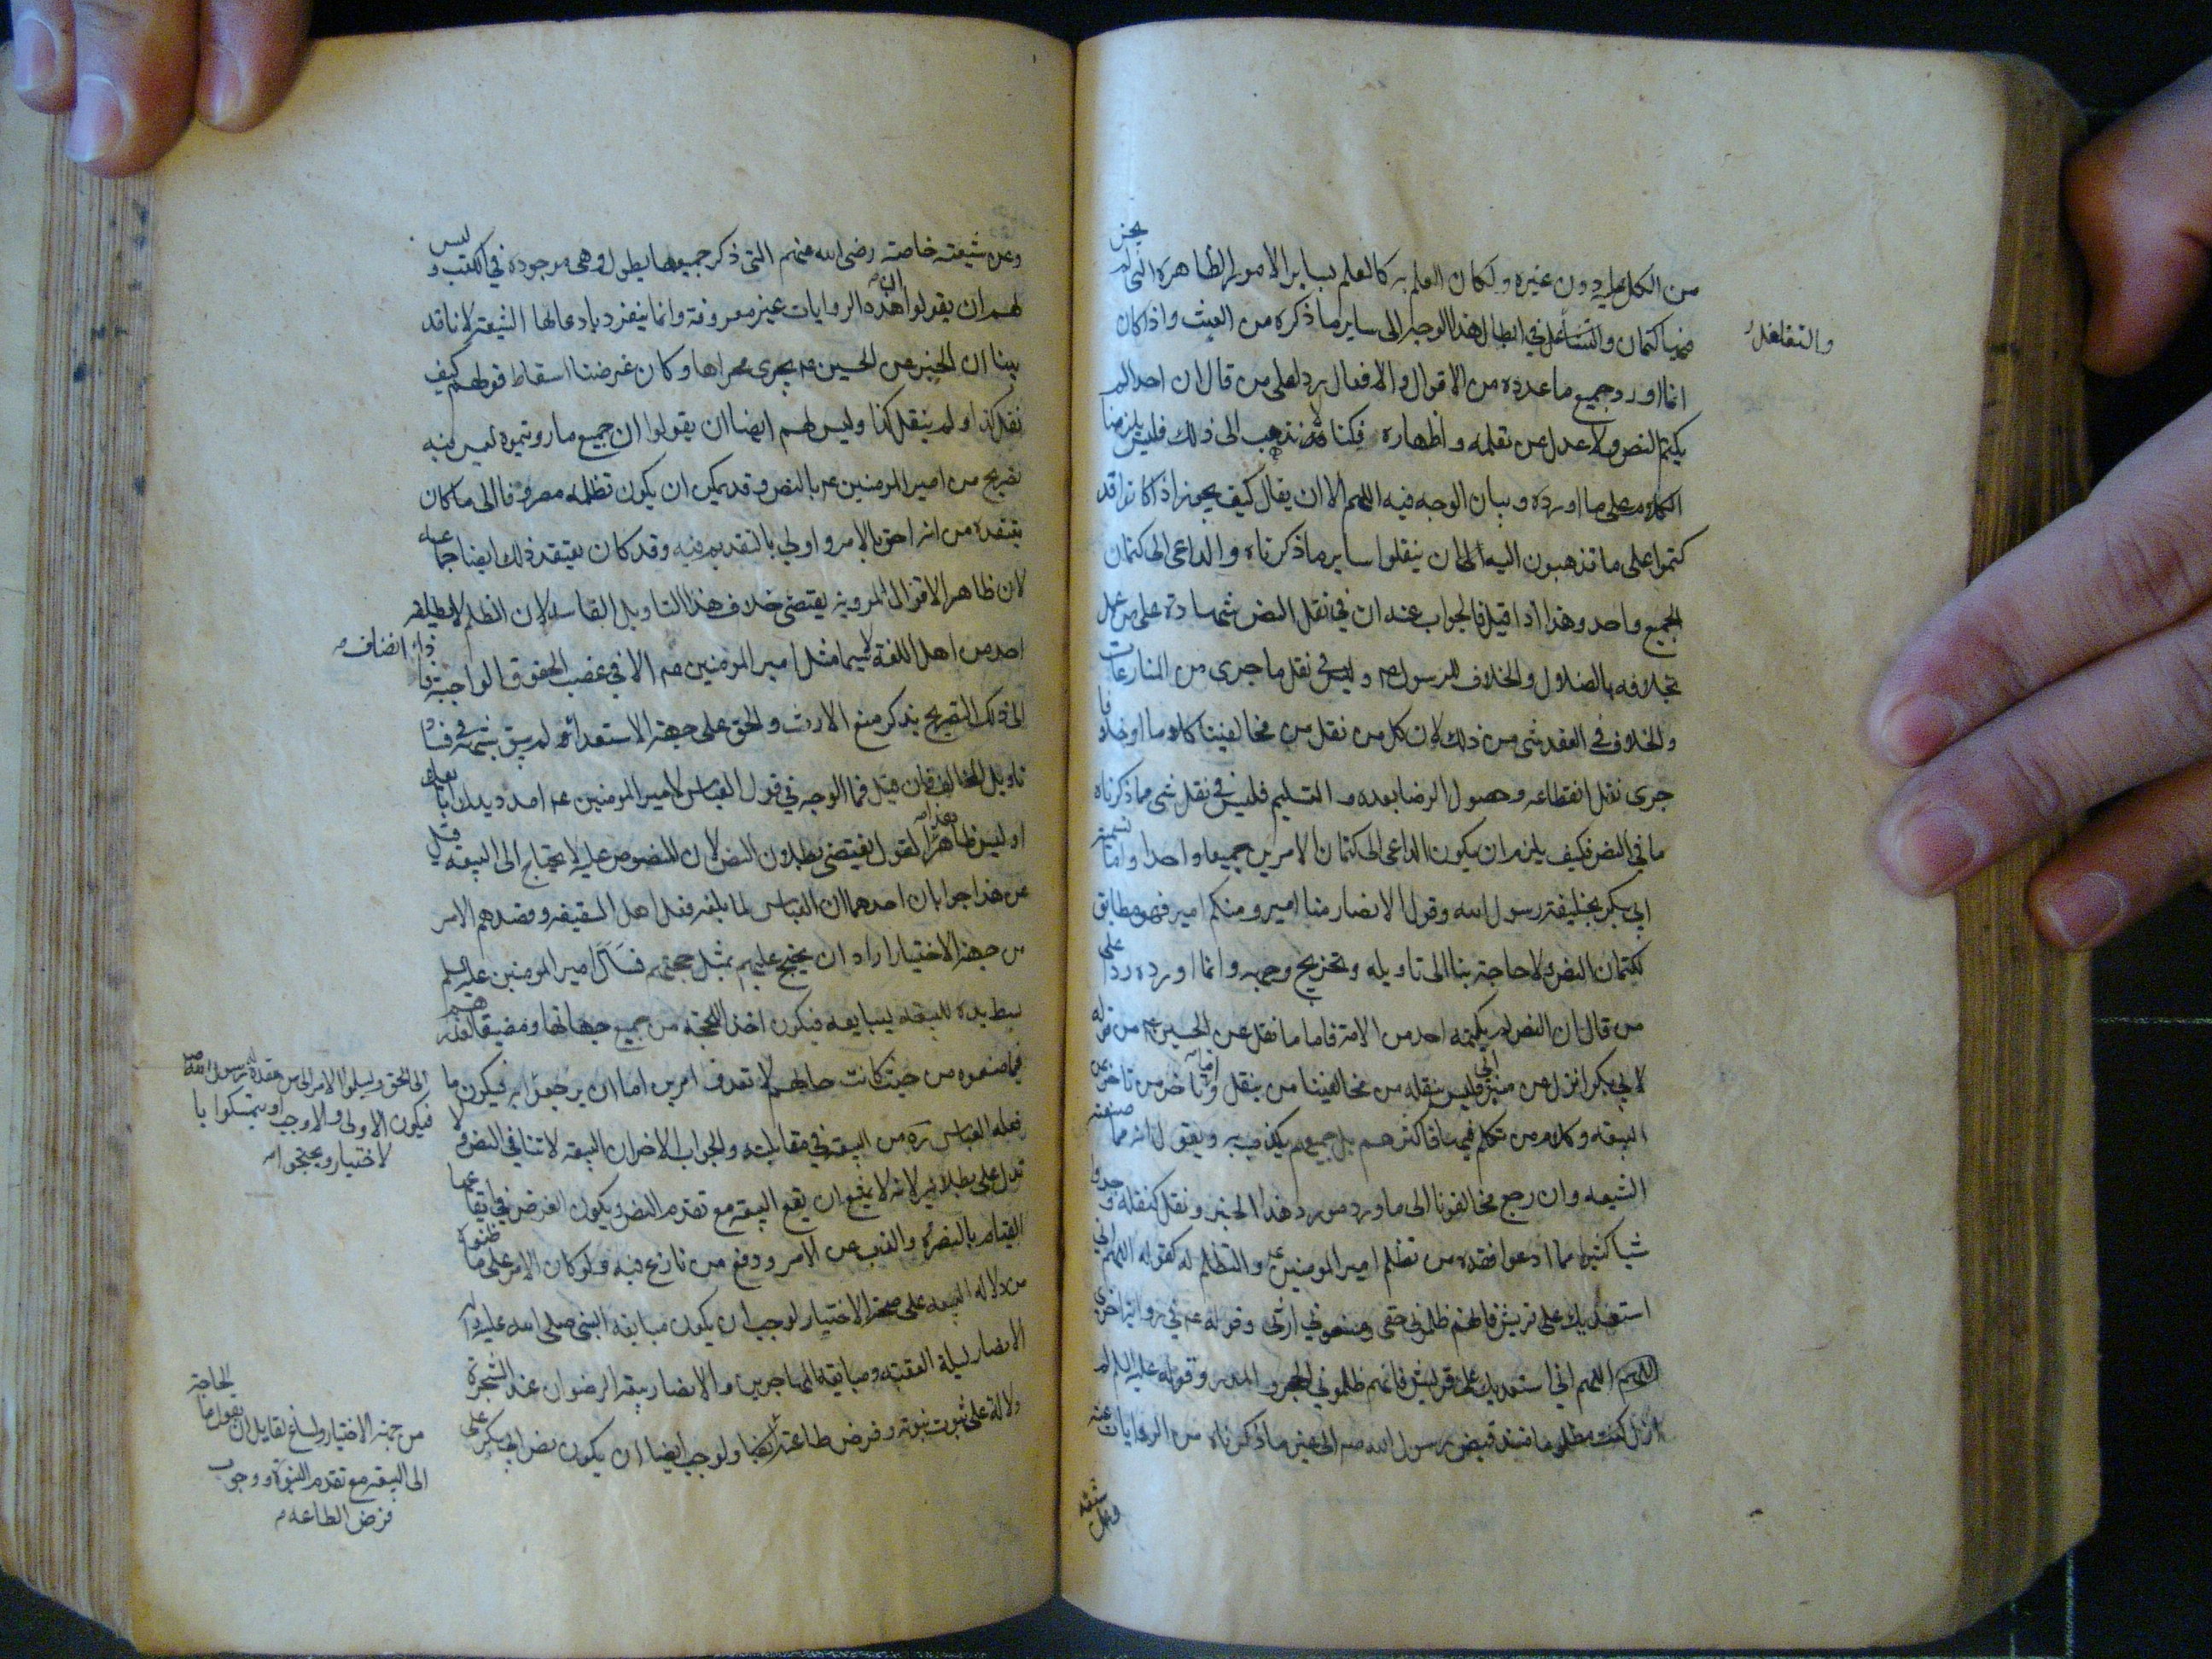 من الكل عليه دون غيره ولكان العلم به كالعلم بساير الامور الظاهرة التي لم يجز
فيها كتمان والتشاغل في ابطال هذا الوجه الى ساير ما ذكره من العيث واذا كان
والتفاغل
انما اورد جميع ما عدده من الاقوال والافعال ردا على من قال ان احدا لم
يكتم النص ولا عدل عن نقله واظهاره فكنا لا نذهب الى ذلك فليس يلزمنا
الكلام على ما اورده وبيان الوجه فيه اللهم الا ان يقال كيف يجوز اذا كانوا قد
كتموا على ما تذهبون اليه الى ان ينقلوا ساير ما ذكرناه والداعى الى كتمان
الجميع واحد وهذا اذا قيل فالجواب عنه ان في نقل النص شهادة على من عمل
بخلافه بالضلال والخلاف للرسول ص وليس في نقل ما جرى من المنازعات
والخلاف في العقد شى من ذلك لان كل من نقل من مخالفينا كلاما او خلافا
جرى نقل انقطاعه وحصول الرضا بعده والتسليم فليس في نقل شى مما ذكرناه
ما في النص فكيف يلزم ان يكون الداعى الى كتمان الامرين جميعا واحدا واما تسمية
ابي بكر بخليفة رسول الله وقول الانصار منا امير ومنكم امير فهو مطابق
لكتمان النص ولا حاجة بنا الى تاويله وتخريج وجهه وانما اورده ردا على
من قال ان النص لم يكتمه احد من الامة فاما ما نقل عن الحسين ع من قوله
لابي بكر انزل عن منبر ابي فليس ينقله من مخالفينا من ينقل وتاخر من تاخر عن
البيعه وكلام من تكلم فيها فاكثرهم بل جميعهم يكذب به ويقول انه مما صنعته
الشيعه وان رجع مخالفونا الى ما ورد مورد هذا الخبر ونقل كنقله وجدوا
شيا كثيرا مما ادعوا فقده من تظلم امير المومنين ع والتظلم له كقوله اللهم اني
استعديك على قريش فانهم ظلموني حقى ومنعوني ارثى وقوله ع في رواية اخرى
اللهم اني استعديك على قريش فانهم ظلموني الحجر والمدر وقوله عليه السلام لم
ازل كنت مظلوما منذ قبض رسول الله ص الى غير ما ذكرناه من الروايات عنه
وعن شيعته
وعن شيعته خاصة رضى الله عنهم التى ذكر جميعها يطول وهى موجودة في الكتب وليس
لهم ان يقولوا ان هذه الروايات غير معروفة وانما ينفرد بادعائها الشيعة لانا قد
بينا ان الخبر عن الحسين ع يجرى مجراها وكان غرضنا اسقاط قولهم كيف
نقل كذا ولم ينقل كذا وليس لهم ايضا ان يقولوا ان جميع ما رويتموه ليس فيه
تصريح من امير المومنين ع بالنص وقد يمكن ان يكون تظلمه مصروفا الى ما كان
يعتقده من انه احق بالامر واولى بالتقديم فيه وقد كان يعتقد ذلك ايضا جماعة
لان ظاهر الاقوال المروية يقتضى خلاف هذا التاويل الفاسد لان التظلم لا يطلقه
احد من اهل اللغة لا سيما مثل امير المومنين ع الا في غصب الحقوق الواجبة فاذا
انضاف
الى ذلك التصريح بذكر منع الارث والحق على جهة الاستعداء لم يبق شبهة في فساد
تاويل المخالف فان قيل فما الوجه في قول العباس لامير المومنين ع امدد يدك ابايعك
اوليس ظاهر هذا القول يقتضى بطلان النص لان المنصوص عليه لا يحتاج الى البيعه قيل
عن هذا جوابان احدهما ان العباس لما بلغه فعل اهل السقيفه وقصدهم الامر
من جهة الاختيار اراد ان يحتج عليهم بمثل حجتهم فسال امير المومنين عليه السلم
بسط يده للبيعة ليبايعه فيكون اخذا للحجة من جميع جهاتها ومضيقا لعذرهم
فيما صنعوه من حيث كانت حالهم لا تعدو امرين اما ان يرجعوا به فيكون ما
الى الحق ويسلموا الامر الى من عقده له رسول الله ص
فيكون الاولى والاوجب او يتمسكوا با
لاختيار ويحتجوا
فعله العباس ره من البيعة في مقابلته والجواب الاخر ان البيعه لا تنافي النص ولا
تدل على بطلانه لانه لا يمتنع ان يقع البيعه مع تقدم النص ويكون الغرض في ايقاعها
القيام بالنصرة والذب عن الامر ودفع من نازع فيه ولو كان الامر على ما ظنوه
من دلاله البيعه على صحة الاختيار لوجب ان يكون مبايعه النبى صلى الله عليه واله
الانصار ليلة العقبه ومبايعة المهاجرين والانصار بيعة الرضوان عند الشجرة
دلالة على ثبوت نبوته وفرض طاعته ولوجب ايضا ان يكون نص ابي بكر على
من جهة الاختيار ولساغ لقايل ان يقول ما الحاجة
الى البيعه مع تقدم النبوة ووجوب
فرض الطاعه